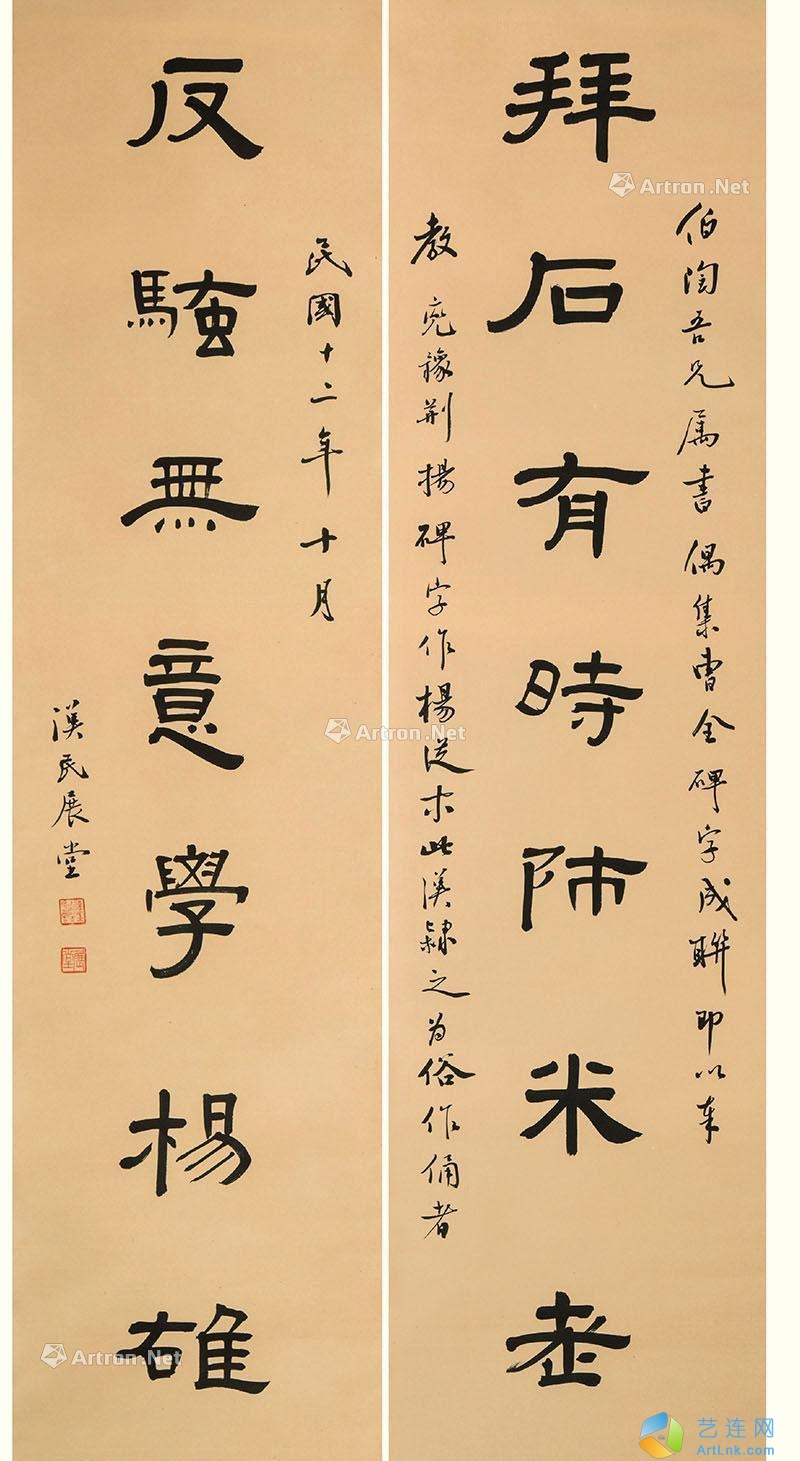 伯陶吾兄属書偶集曹全碑字成聯即以奉
拜石有時師米老
教 兖豫荆揚碑字作楊從木此漢隸之為俗作俑者
民國十二年十月
反騷無意學楊雄
漢民展堂
Artron.Net
Artron.Net
Artron.Net
艺连网
ArtLnk.com